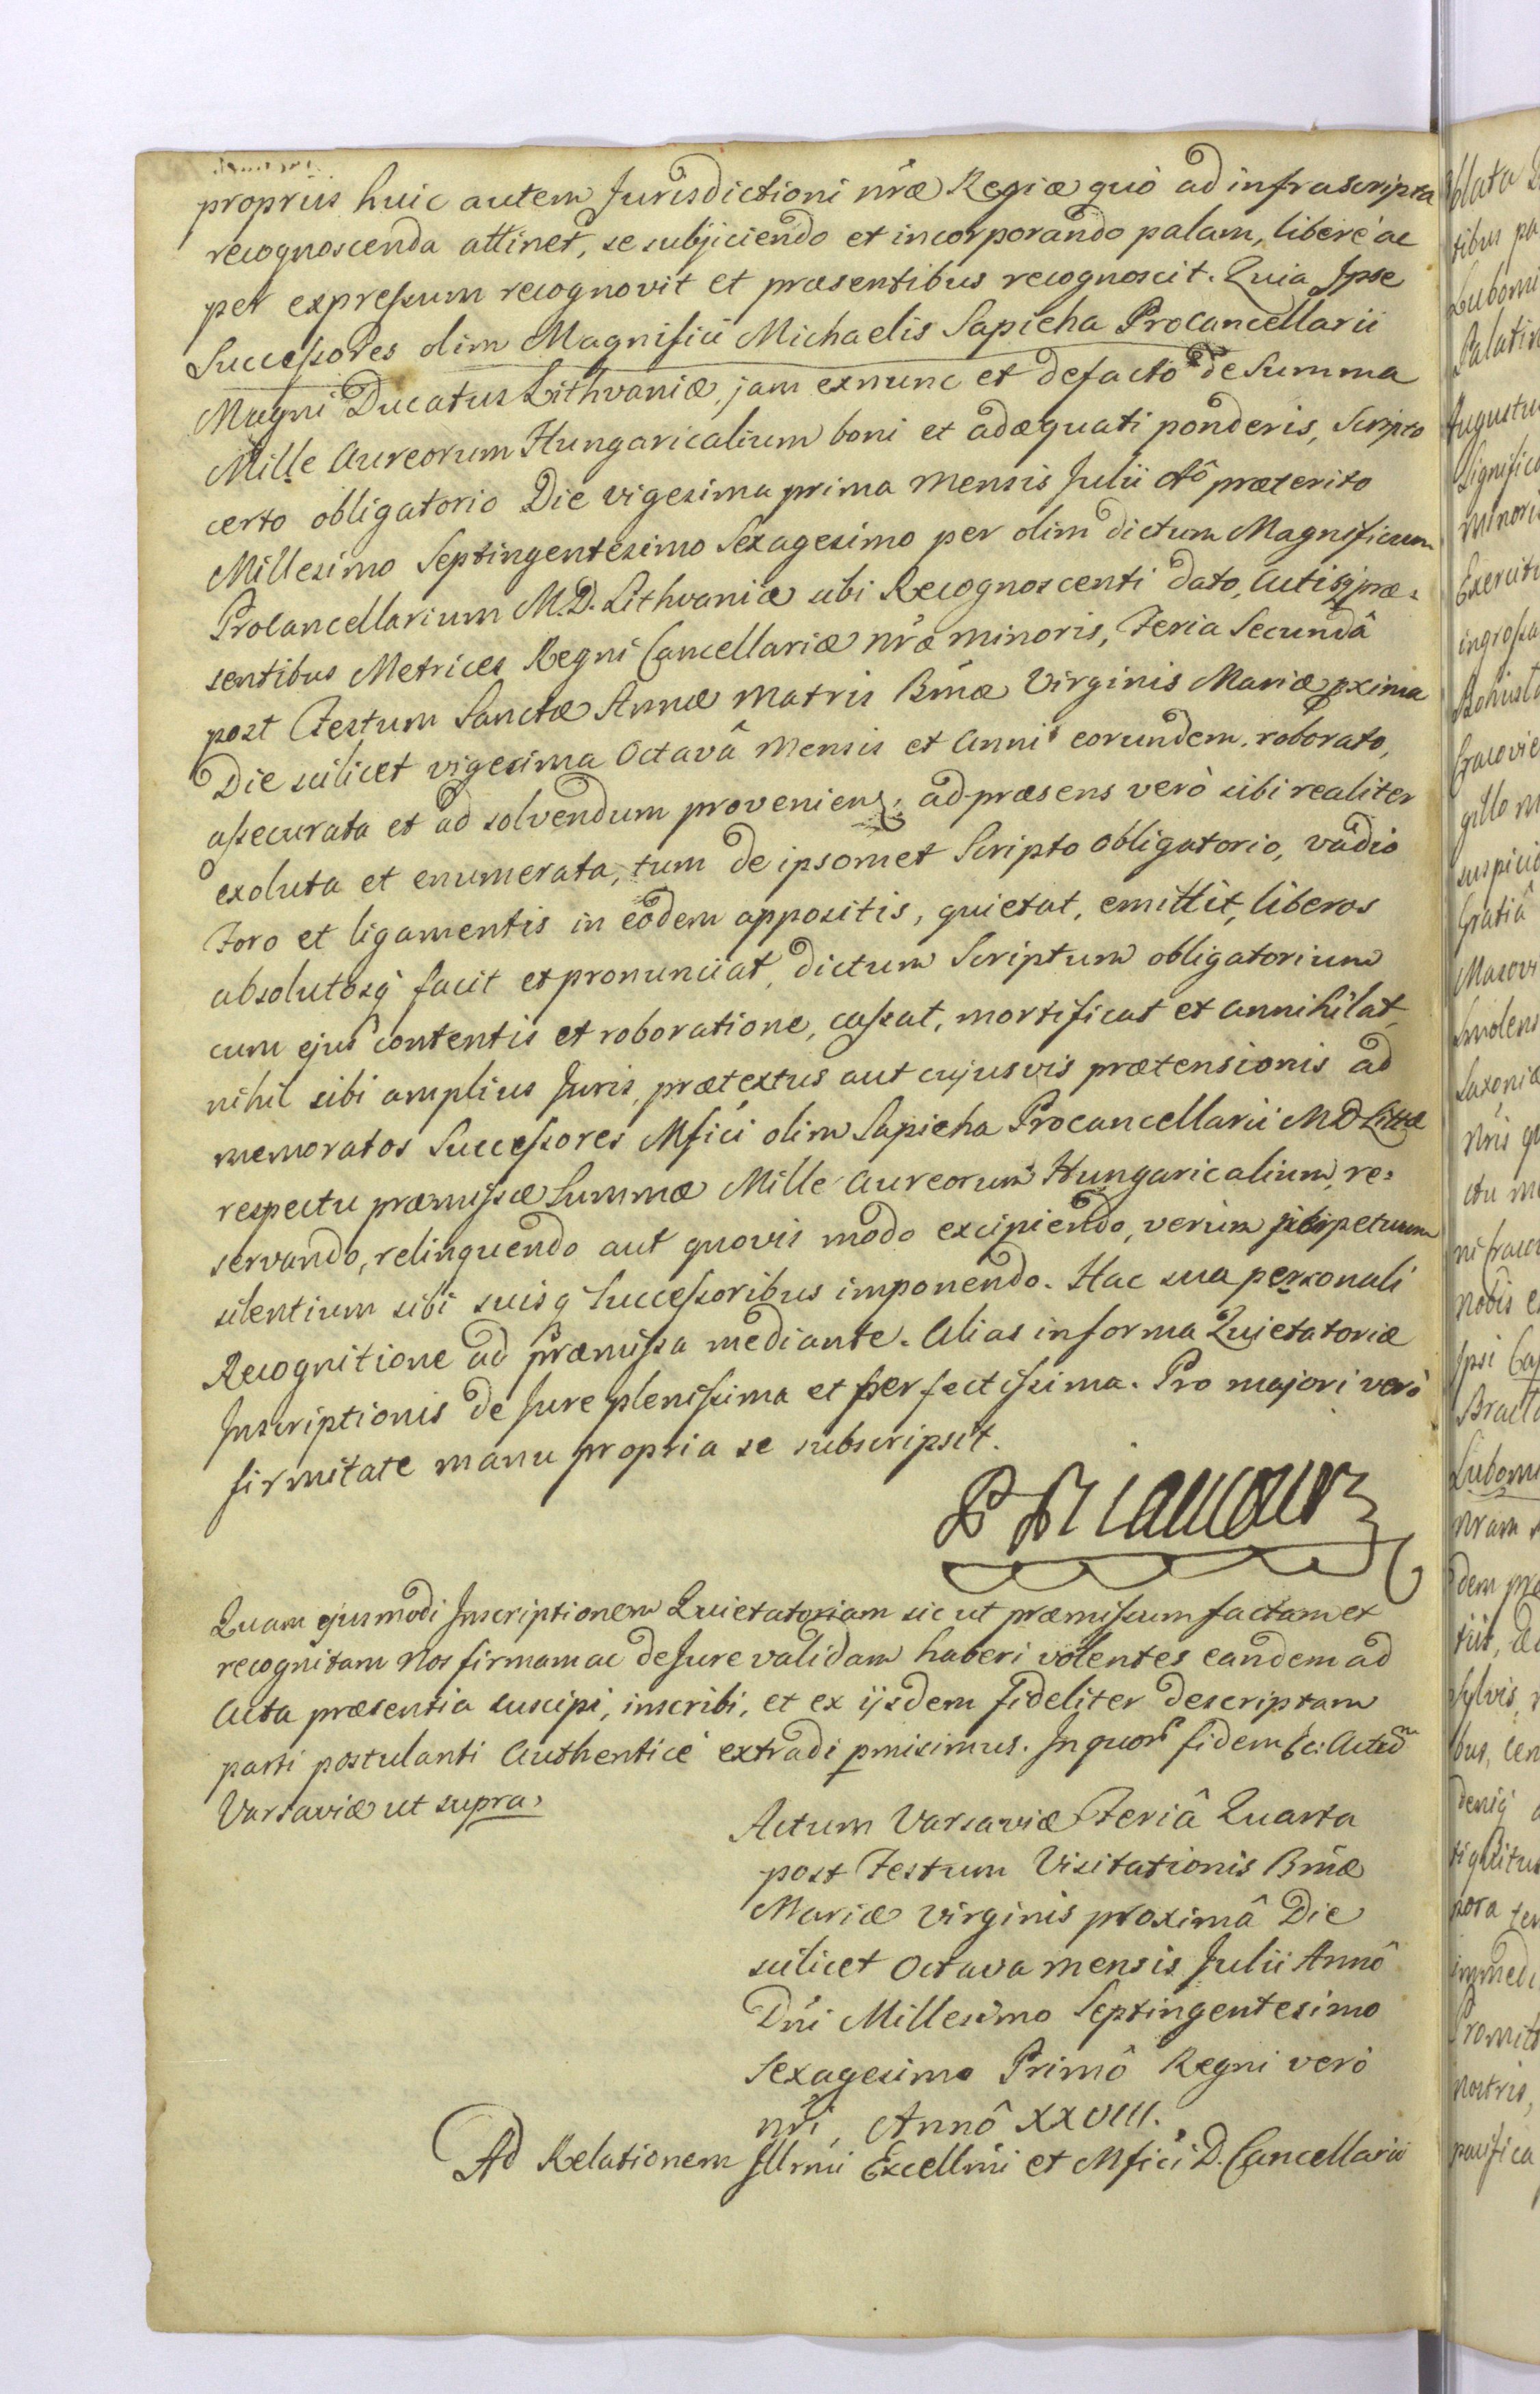 proprius huic autem Jurisdictioni nræ Regiæ quò ad infrascripta
recognoscenda attinet, se subjiciendo et incorporando palam, liberè ac
per expressum recognovit et præsentibus recognoscit. Quia Ipse
Successores olim Magnifici Michaelis Sapieha Procancellarii
Magni Ducatus Lithvaniæ, jam exnunc et defacto de Summa
Mille Aureorum Hungaricalium boni et adæquati ponderis, Scripto
certo obligatorio Die vigesima prima Mensis Julii Aô præterito
Millesimo Septingentesimo Sexagesimo per olim dictum Magnificum
Procancellarium M.D. Lithvaniæ sibi Recognoscenti dato, Actisq præ-
sentibus Metrices Regni Cancellariæ nræ minoris, Feria Secundâ
post Festum Sanctæ Annæ Matris Bmæ Virginis Mariæ pxima
Die scilicet vigesima Octavâ Mensis et Anni eorundem roborato,
assecurata et ad solvendum proveniens, ad præsens verò sibi realiter
exoluta et enumerata, tum de ipsomet Scripto obligatorio, vadio
Foro et ligamentis in eodem appositis, quietat, emittit, liberos
absolutosq facit et pronunciat, dictum Scriptum obligatorium
cum ejus contentis et roboratione, cassat, mortificat et annihilat,
nihil sibi amplius Juris, prætextus aut cujusvis prætensionis ad
memoratos Successores Mfici olim Sapieha Procancellarii M D Littæ
respectu præmissæ Summæ Mille Aureorum Hungaricalium, re-
servando, relinquendo aut quovis modo excipiendo, verum ppetuum
silentium sibi suisq Successoribus imponendo. Hac sua personali
Recognitione ad præmissa mediante. Alias in forma Quietatoriæ
Inscriptionis de Jure plenissima et perfectissima. Pro majori verò
firmitate manu propria se subscripsit.
P Riaucour
Quam ejusmodi Inscriptionem Quietatoriam sic ut præmissum factam et
recognitam Nos firmam ac de Jure validam haberi volentes eandem ad
Acta præsentia suscipi, inscribi, et ex ijsdem fideliter descriptam
parti postulanti Authenticè extradi pmisimus. In quor fidem &c: Actum
Varsaviæ ut supra.
Actum Varsaviæ Feriâ Quarta
post Festum Visitationis Bmæ
Mariæ Virginis proximâ Die
scilicet Octava mensis Julii Annô
Dni Millesimo Septingentesimo
Sexagesimo Primô Regni verò
nri, Annô XXVIII.
Ad Relationem Illmi Excellmi et Mfici D. Cancellarii